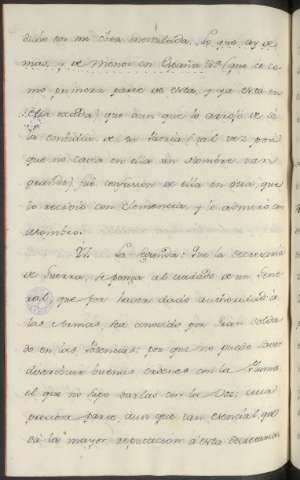 dicho en mi obra intitulada, Lo que hay de
mas, y de menos en España &c (que es co
mo primera parte de esta, y ya esta en
ella) que aun que lo arrojo de si
la de su Patria (tal vez por
que no cavia en ella un Hombre tan
grande) fue confusion de ella en otra, que
lo recivio con clemencia, y lo admiró con
asombro.
VI. La segunda: Que la Secretaria
de Guerra, se ponga al cuidado de un Gene
ral, que por haver dado autoridad á
las Armas, sea conocido por Gran Solda
do en las Potencias: por que no puede haver
buenas ordenes con la Pluma
el que no supo darlas con la Voz; cuia
precisa parte, aun que tan esencial que
dá la mayor reputacion á esta Secretaria